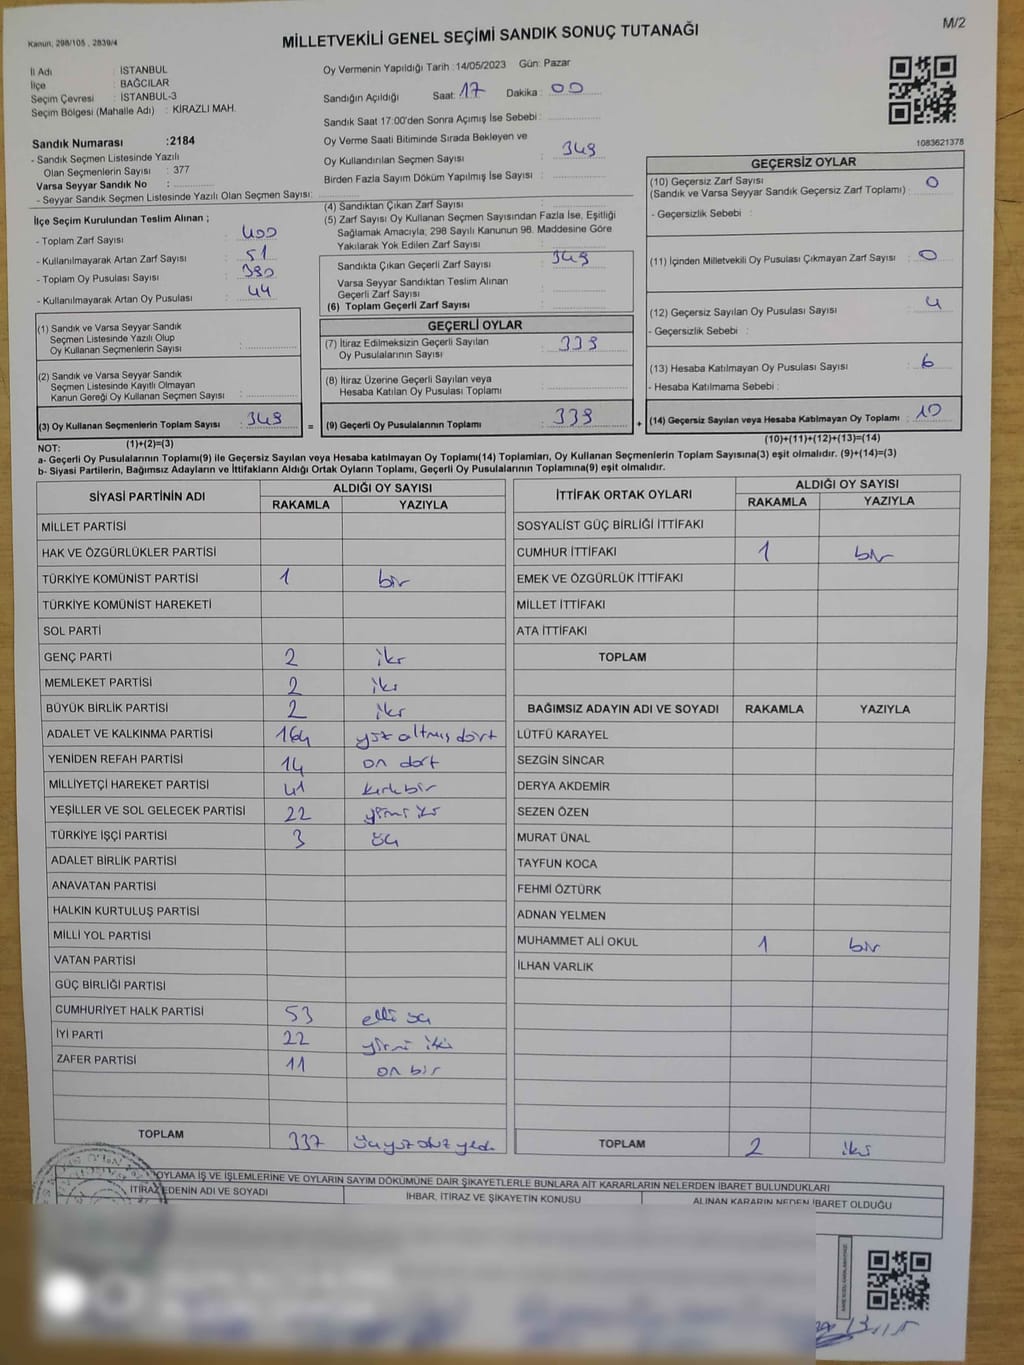 M/2
Kanun, 298/105 , 2839/4
MİLLETVEKİLİ GENEL SEÇİMİ SANDIK SONUÇ TUTANAĞI
İl Adı : İSTANBUL
İlçe : BAĞCILAR
Seçim Çevresi : İSTANBUL-3
Seçim Bölgesi (Mahalle Adı) : KİRAZLI MAH.
Sandık Numarası :2184
- Sandık Seçmen Listesinde Yazılı
Olan Seçmenlerin Sayısı : 377
Varsa Seyyar Sandık No :
- Seyyar Sandık Seçmen Listesinde Yazılı Olan Seçmen Sayısı:
Oy Vermenin Yapıldığı Tarih :14/05/2023 Gün: Pazar
Sandığın Açıldığı Saat: 17 Dakika : 00
Sandık Saat 17:00'den Sonra Açımış İse Sebebi :
Oy Verme Saati Bitiminde Sırada Bekleyen ve
Oy Kullandırılan Seçmen Sayısı : 349
Birden Fazla Sayım Döküm Yapılmış İse Sayısı :
1083621378
İlçe Seçim Kurulundan Teslim Alınan ;
- Toplam Zarf Sayısı : 400
- Kullanılmayarak Artan Zarf Sayısı : 51
- Toplam Oy Pusulası Sayısı : 390
- Kullanılmayarak Artan Oy Pusulası : 44
(1) Sandık ve Varsa Seyyar Sandık
Seçmen Listesinde Yazılı Olup
Oy Kullanan Seçmenlerin Sayısı :
(2) Sandık ve Varsa Seyyar Sandık
Seçmen Listesinde Kayıtlı Olmayan
Kanun Gereği Oy Kullanan Seçmen Sayısı :
(3) Oy Kullanan Seçmenlerin Toplam Sayısı : 349
(1)+(2)=(3)
(4) Sandıktan Çıkan Zarf Sayısı :
(5) Zarf Sayısı Oy Kullanan Seçmen Sayısından Fazla İse, Eşitliği
Sağlamak Amacıyla, 298 Sayılı Kanunun 98. Maddesine Göre
Yakılarak Yok Edilen Zarf Sayısı :
Sandıkta Çıkan Geçerli Zarf Sayısı : 349
Varsa Seyyar Sandıktan Teslim Alınan
Geçerli Zarf Sayısı :
(6) Toplam Geçerli Zarf Sayısı :
GEÇERLİ OYLAR
(7) İtiraz Edilmeksizin Geçerli Sayılan
Oy Pusulalarının Sayısı : 339
(8) İtiraz Üzerine Geçerli Sayılan veya
Hesaba Katılan Oy Pusulası Toplamı :
= (9) Geçerli Oy Pusulalarının Toplamı : 339 +
GEÇERSİZ OYLAR
(10) Geçersiz Zarf Sayısı
(Sandık ve Varsa Seyyar Sandık Geçersiz Zarf Toplamı) : 0
- Geçersizlik Sebebi :
(11) İçinden Milletvekili Oy Pusulası Çıkmayan Zarf Sayısı : 0
(12) Geçersiz Sayılan Oy Pusulası Sayısı : 4
- Geçersizlik Sebebi :
(13) Hesaba Katılmayan Oy Pusulası Sayısı : 6
- Hesaba Katılmama Sebebi :
(14) Geçersiz Sayılan veya Hesaba Katılmayan Oy Toplamı : 10
(10)+(11)+(12)+(13)=(14)
NOT:
a- Geçerli Oy Pusulalarının Toplamı(9) ile Geçersiz Sayılan veya Hesaba katılmayan Oy Toplamı(14) Toplamları, Oy Kullanan Seçmenlerin Toplam Sayısına(3) eşit olmalıdır. (9)+(14)=(3)
b- Siyasi Partilerin, Bağımsız Adayların ve İttifakların Aldığı Ortak Oyların Toplamı, Geçerli Oy Pusulalarının Toplamına(9) eşit olmalıdır.
SİYASİ PARTİNİN ADI ALDIĞI OY SAYISI
RAKAMLA YAZIYLA
MİLLET PARTİSİ
HAK VE ÖZGÜRLÜKLER PARTİSİ
TÜRKİYE KOMÜNİST PARTİSİ 1 bir
TÜRKİYE KOMÜNİST HAREKETİ
SOL PARTİ
GENÇ PARTİ 2 iki
MEMLEKET PARTİSİ 2 iki
BÜYÜK BİRLİK PARTİSİ 2 iki
ADALET VE KALKINMA PARTİSİ 164 yüz altmış dört
YENİDEN REFAH PARTİSİ 14 on dört
MİLLİYETÇİ HAREKET PARTİSİ 41 kırk bir
YEŞİLLER VE SOL GELECEK PARTİSİ 22 yirmi iki
TÜRKİYE İŞÇİ PARTİSİ 3 üç
ADALET BİRLİK PARTİSİ
ANAVATAN PARTİSİ
HALKIN KURTULUŞ PARTİSİ
MİLLİ YOL PARTİSİ
VATAN PARTİSİ
GÜÇ BİRLİĞİ PARTİSİ
CUMHURİYET HALK PARTİSİ 53 elli üç
İYİ PARTİ 22 yirmi iki
ZAFER PARTİSİ 11 on bir
TOPLAM 337 üçyüz otuz yedi
İTTİFAK ORTAK OYLARI ALDIĞI OY SAYISI
RAKAMLA YAZIYLA
SOSYALİST GÜÇ BİRLİĞİ İTTİFAKI
CUMHUR İTTİFAKI 1 bir
EMEK VE ÖZGÜRLÜK İTTİFAKI
MİLLET İTTİFAKI
ATA İTTİFAKI
TOPLAM
BAĞIMSIZ ADAYIN ADI VE SOYADI RAKAMLA YAZIYLA
LÜTFÜ KARAYEL
SEZGİN SİNCAR
DERYA AKDEMİR
SEZEN ÖZEN
MURAT ÜNAL
TAYFUN KOCA
FEHMİ ÖZTÜRK
ADNAN YELMEN
MUHAMMET ALİ OKUL 1 bir
İLHAN VARLIK
TOPLAM 2 iki
OYLAMA İŞ VE İŞLEMLERİNE VE OYLARIN SAYIM DÖKÜMÜNE DAİR ŞİKAYETLERLE BUNLARA AİT KARARLARIN NELERDEN İBARET BULUNDUKLARI
İTİRAZ EDENİN ADI VE SOYADI İHBAR, İTİRAZ VE ŞİKAYETİN KONUSU ALINAN KARARIN NEDEN İBARET OLDUĞU